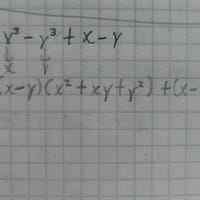 x³ - y³ + x - y
↓ ↓
x y
x-y)(x² + xy + y²) + (x-